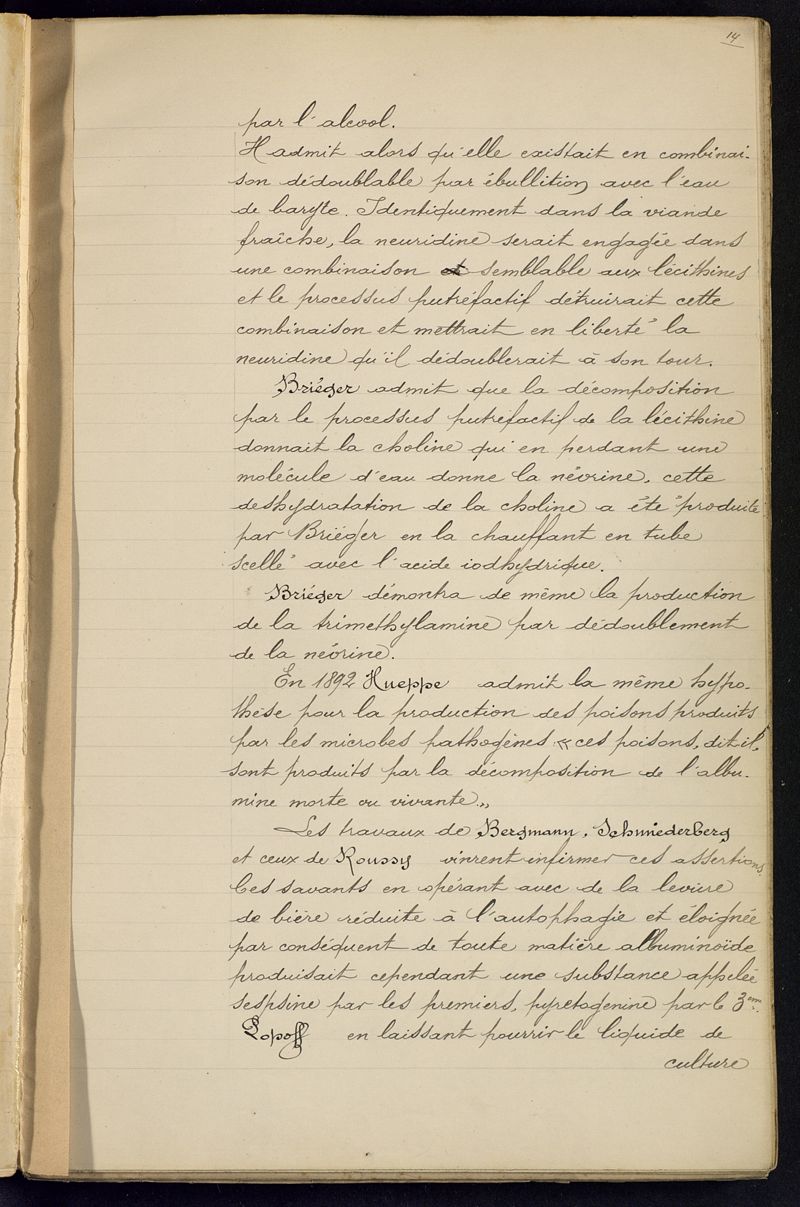 14
par l'alcool.
Il admit alors qu'elle existait en combinai-
son dédoublable par ébullition avec l'eau
de baryte. Identiquement dans la viande
fraîche, la neuridine serait engagée dans
une combinaison et semblable aux lécithines
et le processus putréfactif détruirait cette
combinaison et mettrait en liberté la
neuridine qu'il dédoublerait à son tour.
Briéger admit que la décomposition
par le processus putréfactif de la lécithine
donnait la choline qui en perdant une
molécule d'eau donne la névrine, cette
deshydratation de la choline a été produite
par Briéger en la chauffant en tube
scellé avec l'acide iodhydrique.
Briéger démontra de même la production
de la trimethylamine par dédoublement
de la névrine.
En 1892 Hueppe admit la même hypo-
thèse pour la production des poisons produits
par les microbes pathogènes « ces poisons, dit il,
sont produits par la décomposition de l'albu-
mine morte ou vivante »
Les travaux de Bergmann, Schmiederberg
et ceux de Roussy vinrent infirmer ces assertions.
Ces savants en opérant avec de la levure
de bière réduite à l'autophagie et éloignée
par conséquent de toute matière albuminoïde
produisait cependant une substance appelée
sespsine par les premiers, pyretogenine par le 3em.
Popoff en laissant pourrir le liquide de
culture